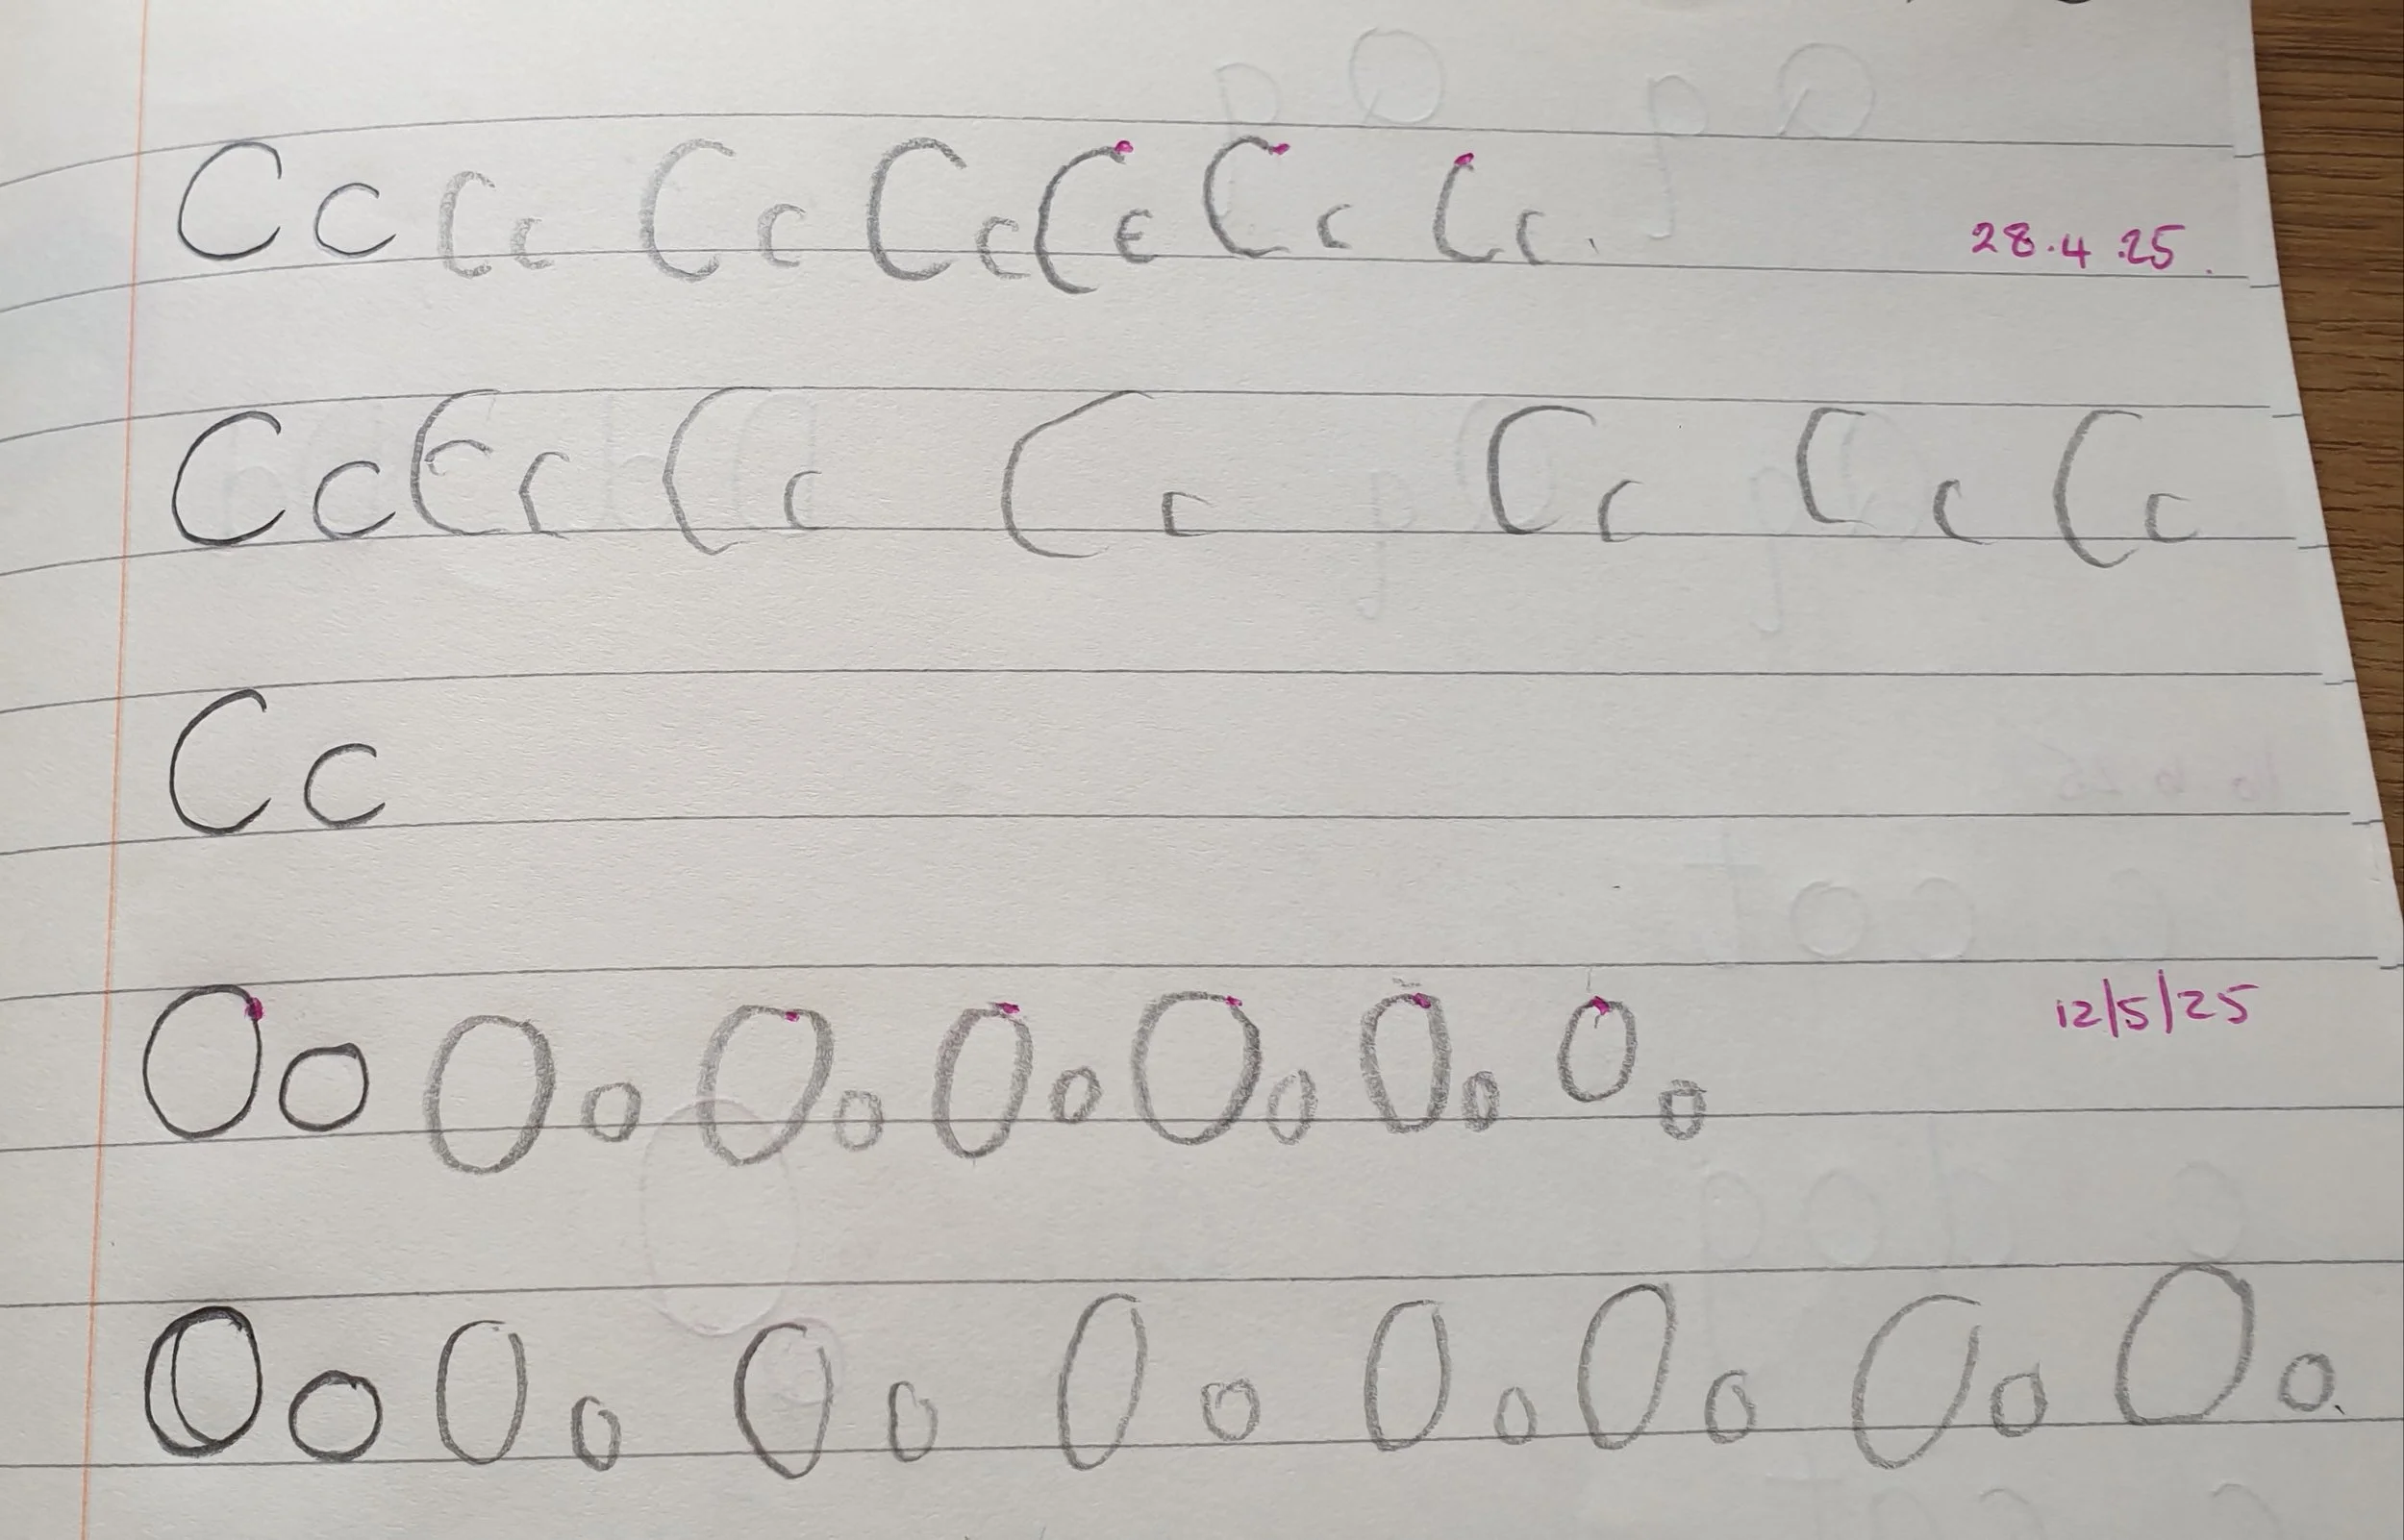 Cc Cc Cc Cc Cc Cc Cc . 28.4.25.
Cc Cc Cc Cc Cc Cc Cc
Cc
Oo Oo Oo Oo Oo Oo Oo 12/5/25
Oo Oo Oo Oo Oo Oo Oo Oo.